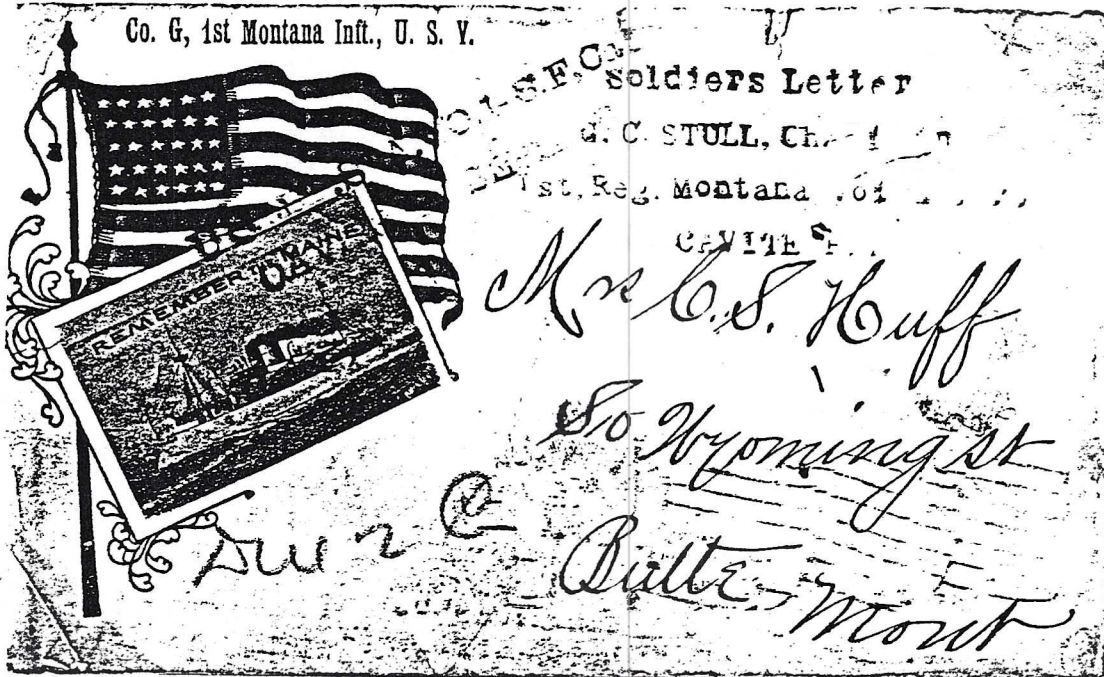 Co. G, 1st Montana Inft., U. S. V.
Soldiers Letter
G. C. STULL,
1st, Reg. Montana
CAVITE
REMEMBER THE MAINE
Mrs C. S. Huff
So Wyoming st
Butte, Mont
Due 2 c